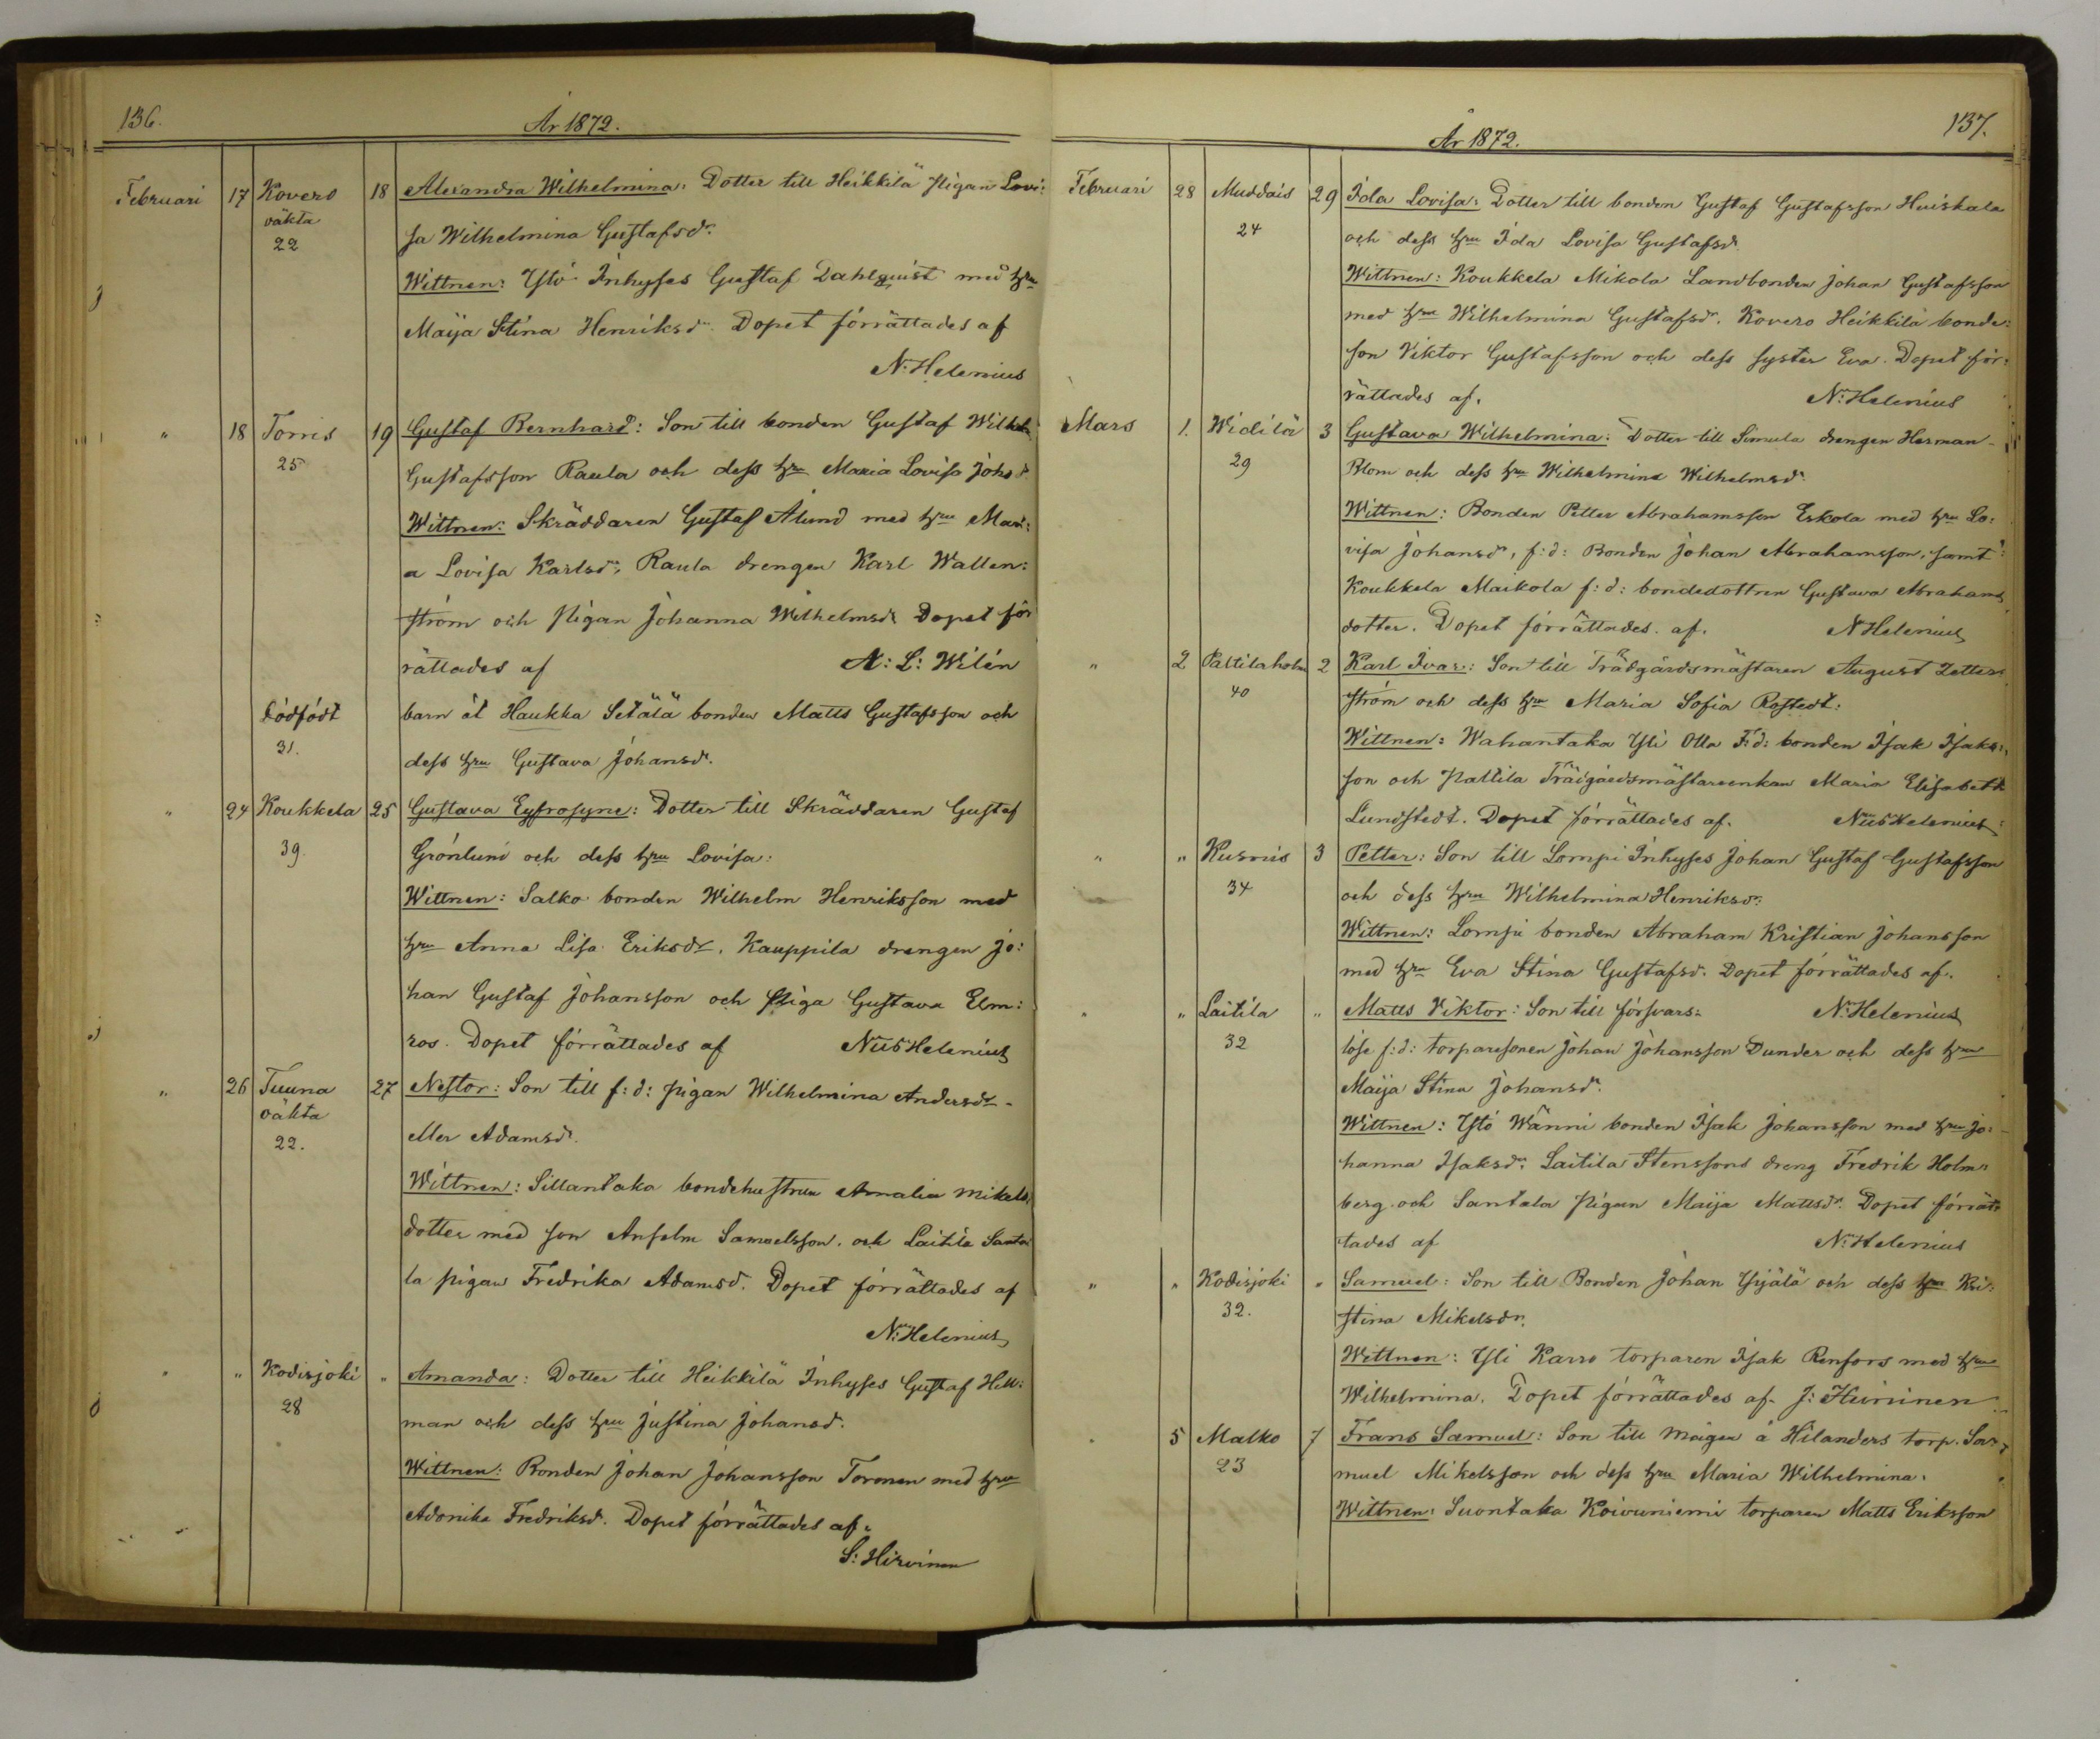 136.
År 1872.
Februari 17 Kovero 18 Alexandra Wilhelmina: Dotter till Heikkilä pigan Lovi:
oäkta
22
sa Wilhelmina Gustafsdr.
Wittnen: Ylö Inhyses Gustaf Dahlquist med hru
Maija Stina Henriksdr. Dopet förrättades af
N. Helenius
" 18 Torris 19 Gustaf Bernhard: Son till bonden Gustaf Wilhelm
25
Gustafsson Raula och dess hru Maria Lovisa Johsdr.
Wittnen: Skräddaren Gustaf Ålund med hru Mari:
a Lovisa Karlsdr, Raula drengen Karl Wallen:
ström och pigan Johanna Wilhelmsdr. Dopet för
rättades af A: L: Welin
Dödfödt barn åt Haukka Setälä bonden Matts Gustafsson och
31.
dess hru Gustava Johansdr.
" 24 Koukkela 25 Gustava Eyfrosyne: Dotter till Skräddaren Gustaf
39
Grönlund och dess hru Lovisa:
Wittnen: Salko bonden Wilhelm Henriksson med
hru Anna Lisa Eriksdr, Kauppila drengen Jo:
han Gustaf Johansson och piga Gustava Elm:
ros. Dopet förrättades af Nils Helenius
" 26 Tuuna 27 Nestor: Son till f: d: pigan Wilhelmina Andersdr
oäkta
22.
eller Adamsdr.
Wittnen: Sillantaka bondehustrun Amalia Mikels
dotter med son Anselm Samuelsson och Laitila Santa
la pigan Fredrika Adamsdr. Dopet förrättades af
N. Helenius
" " Kodisjoki " Amanda: Dotter till Heikkilä Inhyses Gustaf Hell:
28
man och dess hru Justina Johansdr.
Wittnen: Bonden Johan Johansson Toronen med hru
Adonika Fredriksdr. Dopet förrättades af
S: Hirvinen
137.
År 1872.
Februari 28 Muddais 29 Ida Lovisa: Dotter till bonden Gustaf Gustafsson Huiskala
24
och dess hru Ida Lovisa Gustafsdr.
Wittnen: Koukkela Mikola Landbonden Johan Gustafsson
med hru Wilhelmina Gustafsdr. Kovero Heikkilä bonde:
son Viktor Gustafsson och dess syster Eva. Dopet för:
rättades af. N. Helenius
Mars 1. Widilä 3 Gustava Wilhelmina: Dotter till Simula drengen Herman
29
Blom och dess hru Wilhelmina Wilhelmsdr.
Wittnen: Bonden Petter Abrahamsson Eskola med hru Lo:
visa Johansdr, f: d: Bonden Johan Abrahamsson, samt
Koukkela Maikola f: d: bondedottren Gustava Abrahams
dotter. Dopet förrättades af. N Helenius
" 2 Paltilaholm 2 Karl Ivar: Son till Trädgårdsmästaren August Zetter
40
ström och dess hru Maria Sofia Rostedt:
Wittnen: Wahantaka Yli Olla F: d: bonden Isak Isaks:
son och Paltila Trädgårdsmästareenkan Maria Elisabeth
Lundstedt. Dopet förrättades af. Nils Helenius
" " Kusnis 3 Petter: Son till Lompi Inhyses Johan Gustaf Gustafsson
34
och dess hru Wilhelmina Henriksdr.
Wittnen: Lompi bonden Abraham Kristian Johansson
med hru Eva Stina Gustafsdr. Dopet förrättades af.
" " Laitila " Matts Viktor: Son till försvars: N. Helenius
32
löse f: d: torparesonen Johan Johansson Dunder och dess hru
Maija Stina Johansdr.
Wittnen: Ylö Wänni bonden Isak Johansson med hru Jo:
hanna Isaksdr. Laitila Stenssons dreng Fredrik Holm:
berg och Santala pigan Maija Mattsdr. Dopet förrät:
tades af N. Helenius
" " Kodisjoki " Samuel: Son till Bonden Johan Ylijälä och dess hru Kri:
32.
stina Mikelsdr.
Wittnen: Yli Karro torparen Isak Renfors med hru
Wilhelmina. Dopet förrättades af
5 Malko 7 Frans Samuel: Son till mågen å Hilanders torp. Sa:
23
muel Mikelsson och dess hru Maria Wilhelmina.
Wittnen: Suontaka Koivuniemi torparen Matts Eriksson